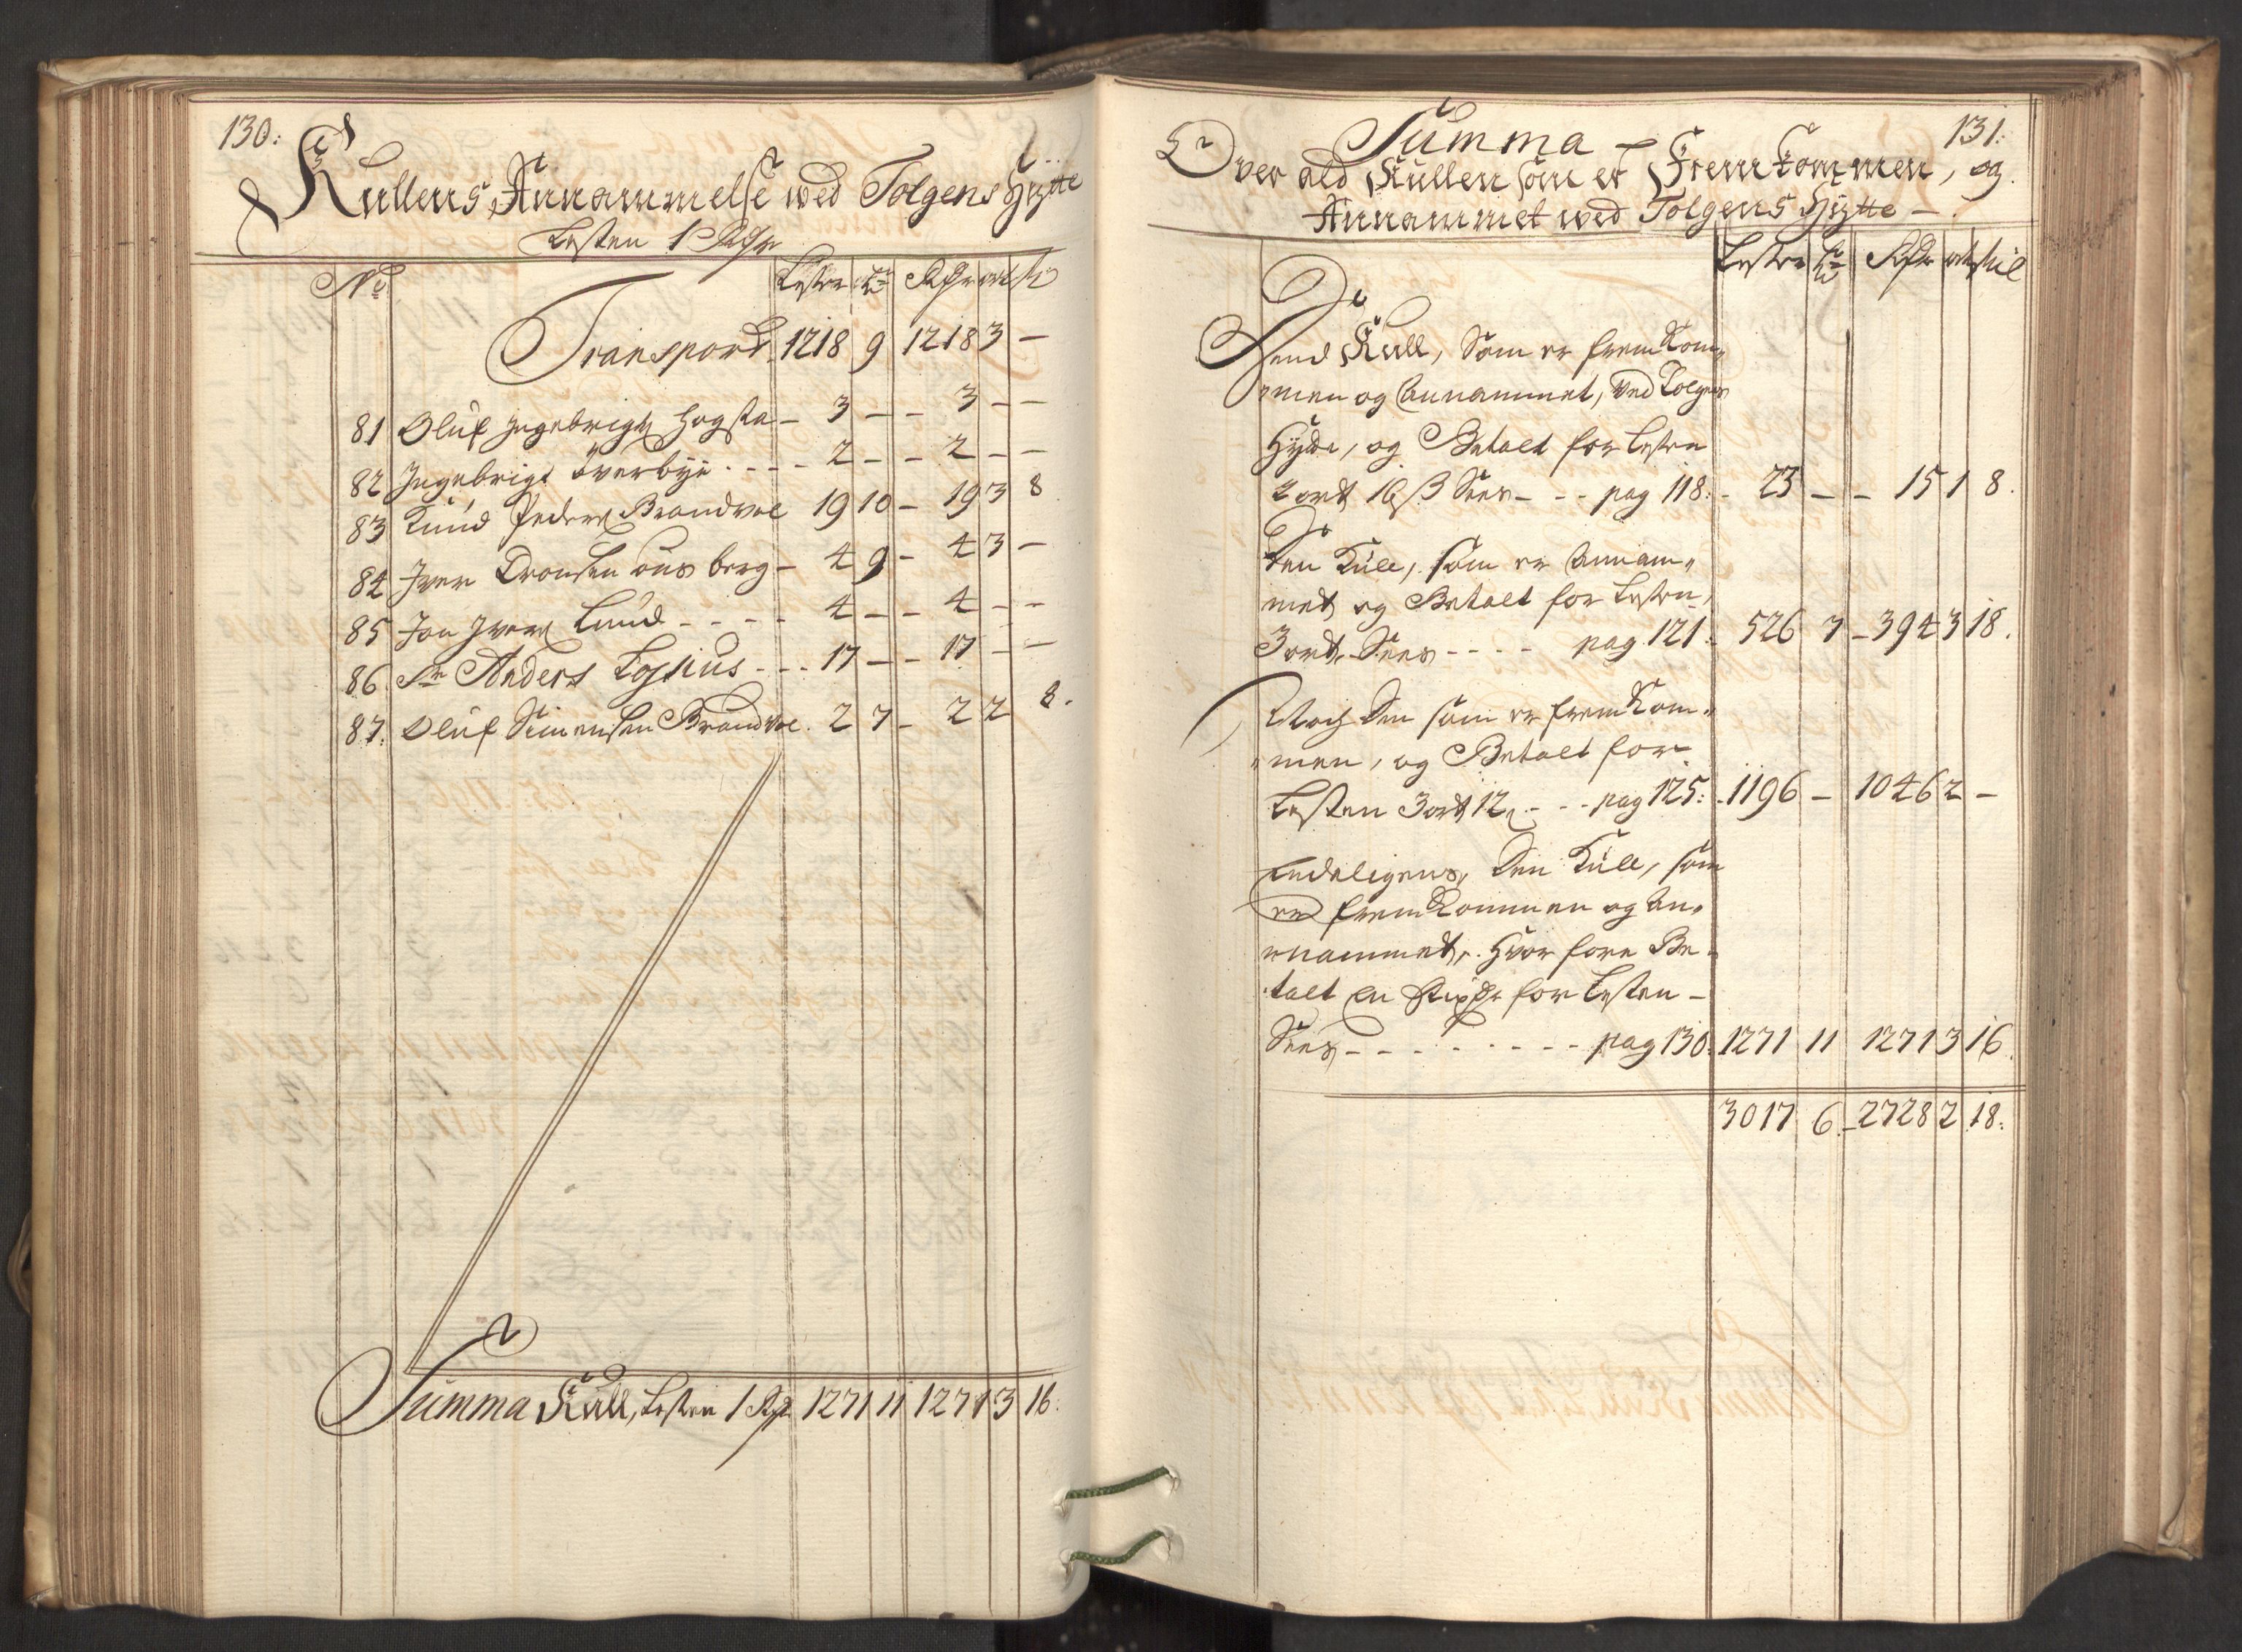 130:
Kullens Annammelse wed Tolgens Hytte
Lesten 1 Rdr
No Lester tr Rdr ort sk
Transport 1218 9 1218 3 —
81 Oluf Ingebrigts Hogsta — 3 — — 3 — —
82 Ingebrigt Överbye . - - - 2 — — 2 — —
83 Knud Peders Brandvol 19 10 — 19 3 8
84 Iver Tronsen ousberg — 4 9 — 4 3 —
85 Jon Ivers Lund - - - - 4 — — 4 — —
86 Sr Anders Lossius - - . 17 — — 17 — —
87. Oluf Simensen Brandvol . 2 7 — 2 2 8.
Summa Kull, Lesten 1 Rdr 1271 11 1271 3 16.
131.
Summa
Over ald Kullen som er Fremkommen, og
Annammet wed Tolgens Hytte —
Lester tr Rdr ort skil
Dend Kull, Som er fremkom„
„men og Annammet, ved Tolgens
Hytte, og Betalt for Lesten
2 ort 16 ß Sees - - - pag 118. - 23 — — 15 1 8.
Den Kull, som er Annam„
met og Betalt for Lesten,
3 ort. Sees - - - - pag 121. 526 7 — 394 3 18.
Noch Den som er fremkom„
„men, og Betalt for
Lesten 3 ort 12 . - - pag 125: . 1196 — 1046 2 —
Endeligens, Den Kull, som
er fremkommen og An„
„nammet, Hvor fore Be„
„talt En Rixdr for Lesten —
Sees - - - - - - - - pag 130. 1271 11 1271 3 16.
3017 6. — 2728 2 18.